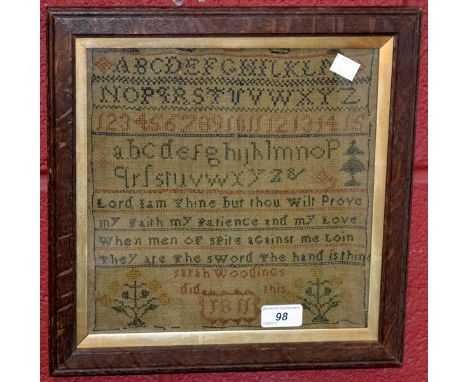 ABCDEFGHIKLM
NOPQRSTUVWXYZ
123456789 10 11 12 13 14 15
abcdefghijklmnop
qrsſtuvwxyz&
Lord I am Thine but thou Wilt Prove
my Faith my Patience and my Love
When men of spite against me Join
They are The sword The hand is thine
sarah Woodings
did this
1811
98